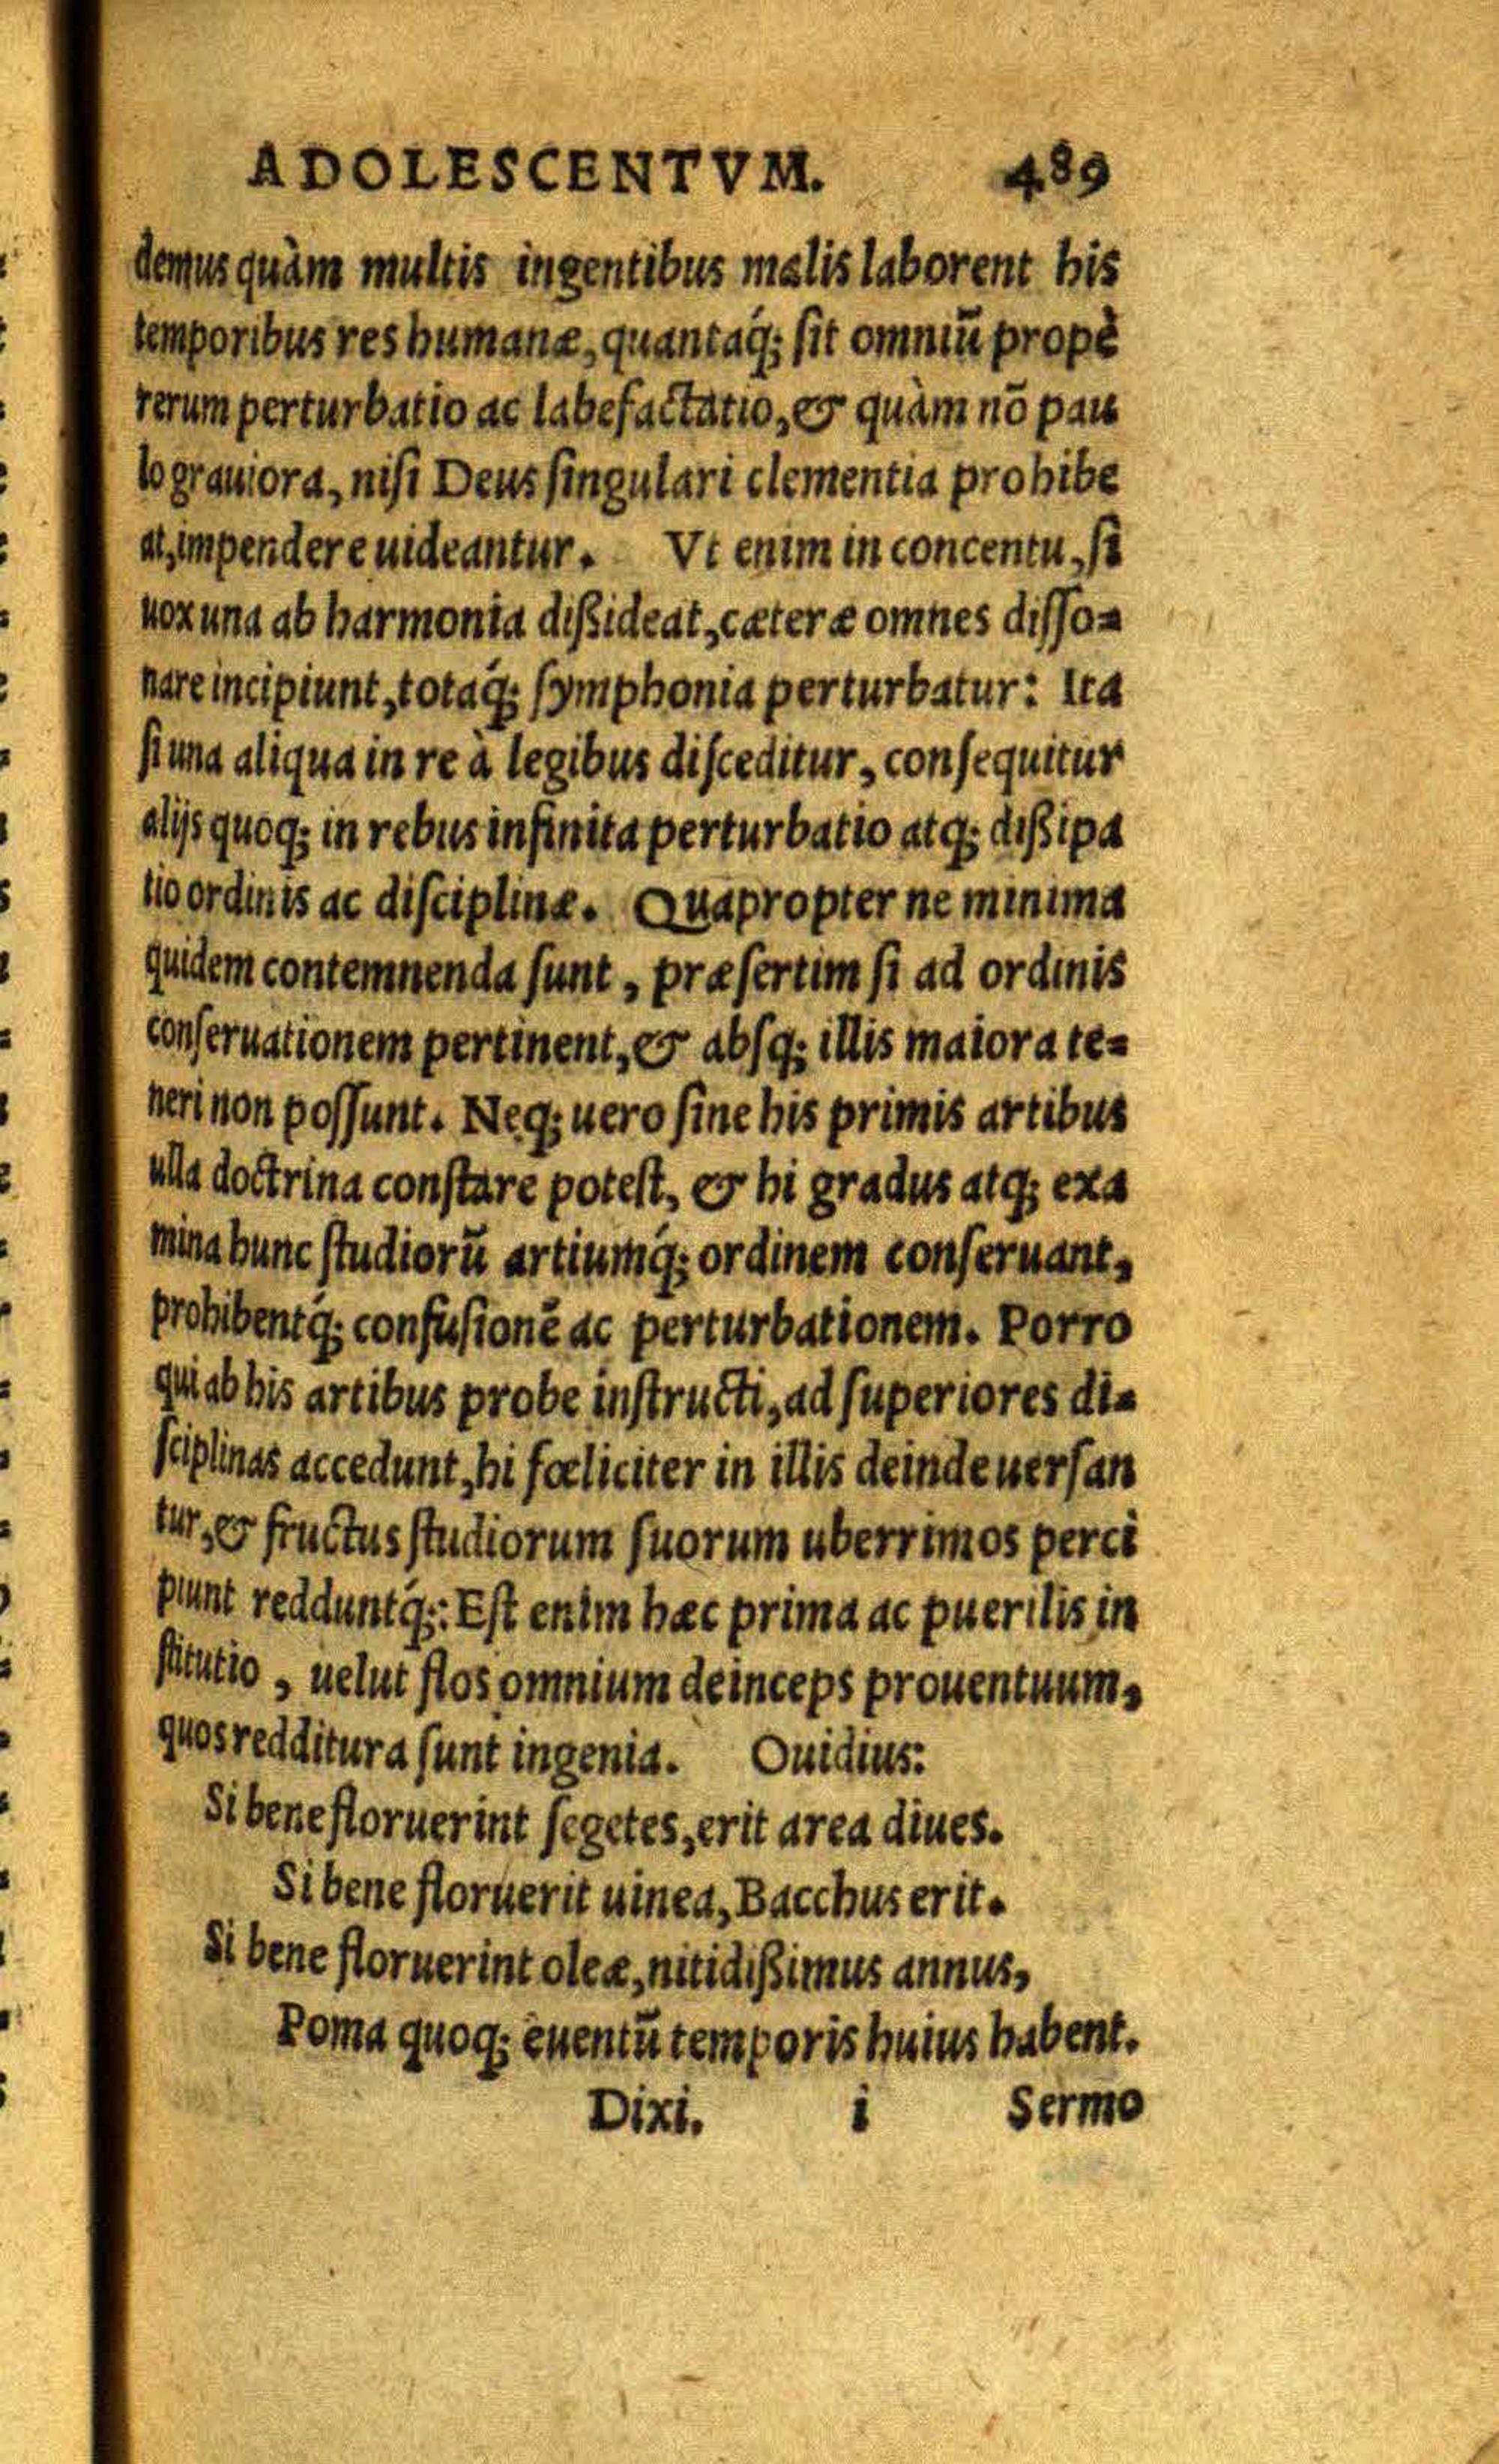 ADOLESCENTVM. 489
demus quàm multis ingentibus malis laborent his
temporibus res humanæ, quantaq́; ſit omniũ propè
rerum perturbatio ac labefactatio, & quàm nõ pau
lo grauiora, niſi Deus ſingulari clementia prohibe
at, impendere uideantur. Vt enim in concentu, ſi
uox una ab harmonia dißideat, cæteræ omnes diſſo-
nare incipiunt, totaq́; ſymphonia perturbatur: Ita
ſi una aliqua in re à legibus diſceditur, conſequitur
alijs quoq; in rebus infinita perturbatio atq; dißipa
tio ordinis ac diſciplinæ. Quapropter ne minima
quidem contemnenda ſunt, præſertim ſi ad ordinis
conſeruationem pertinent, & abſq; illis maiora te-
neri non poſſunt. Neq; uero ſine his primis artibus
ulla doctrina conſtare poteſt, & hi gradus atq; exa
mina hunc ſtudiorũ artiumq́; ordinem conſeruant,
prohibentq́; confuſionẽ ac perturbationem. Porro
qui ab his artibus probe inſtructi, ad ſuperiores di-
ſciplinas accedunt, hi fœliciter in illis deinde uerſan
tur, & fructus ſtudiorum ſuorum uberrimos perci
piunt redduntq́;: Eſt enim hæc prima ac puerilis in
ſtitutio, uelut flos omnium deinceps prouentuum,
quos redditura ſunt ingenia. Ouidius:
Si bene floruerint ſegetes, erit area diues.
Si bene floruerit uinea, Bacchus erit.
Si bene floruerint oleæ, nitidißimus annus,
Poma quoq; euentũ temporis huius habent.
Dixi. i Sermo